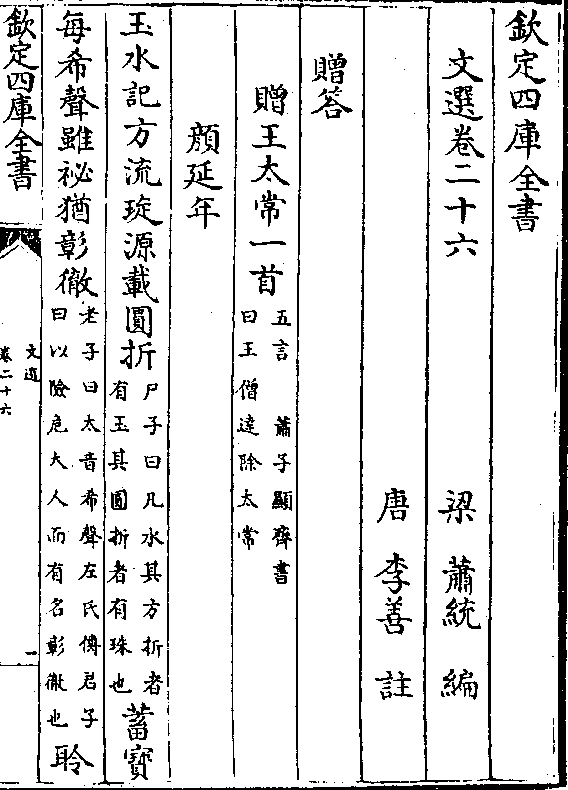 欽定四庫全書
文選卷二十六
梁 蕭統 編
唐 李善 註
贈答
贈王太常一首五言 蕭子顯齊書
曰王僧達除太常
顏延年
玉水記方流琁源載圓折尸子曰凡水其方折者
有玉其圓折者有珠也蓄寳
每希聲雖祕猶彰徹老子曰太音希聲左氏傳君子
曰以險危大人而有名彰徹也聆
欽定四庫全書
文選
卷二十六
一